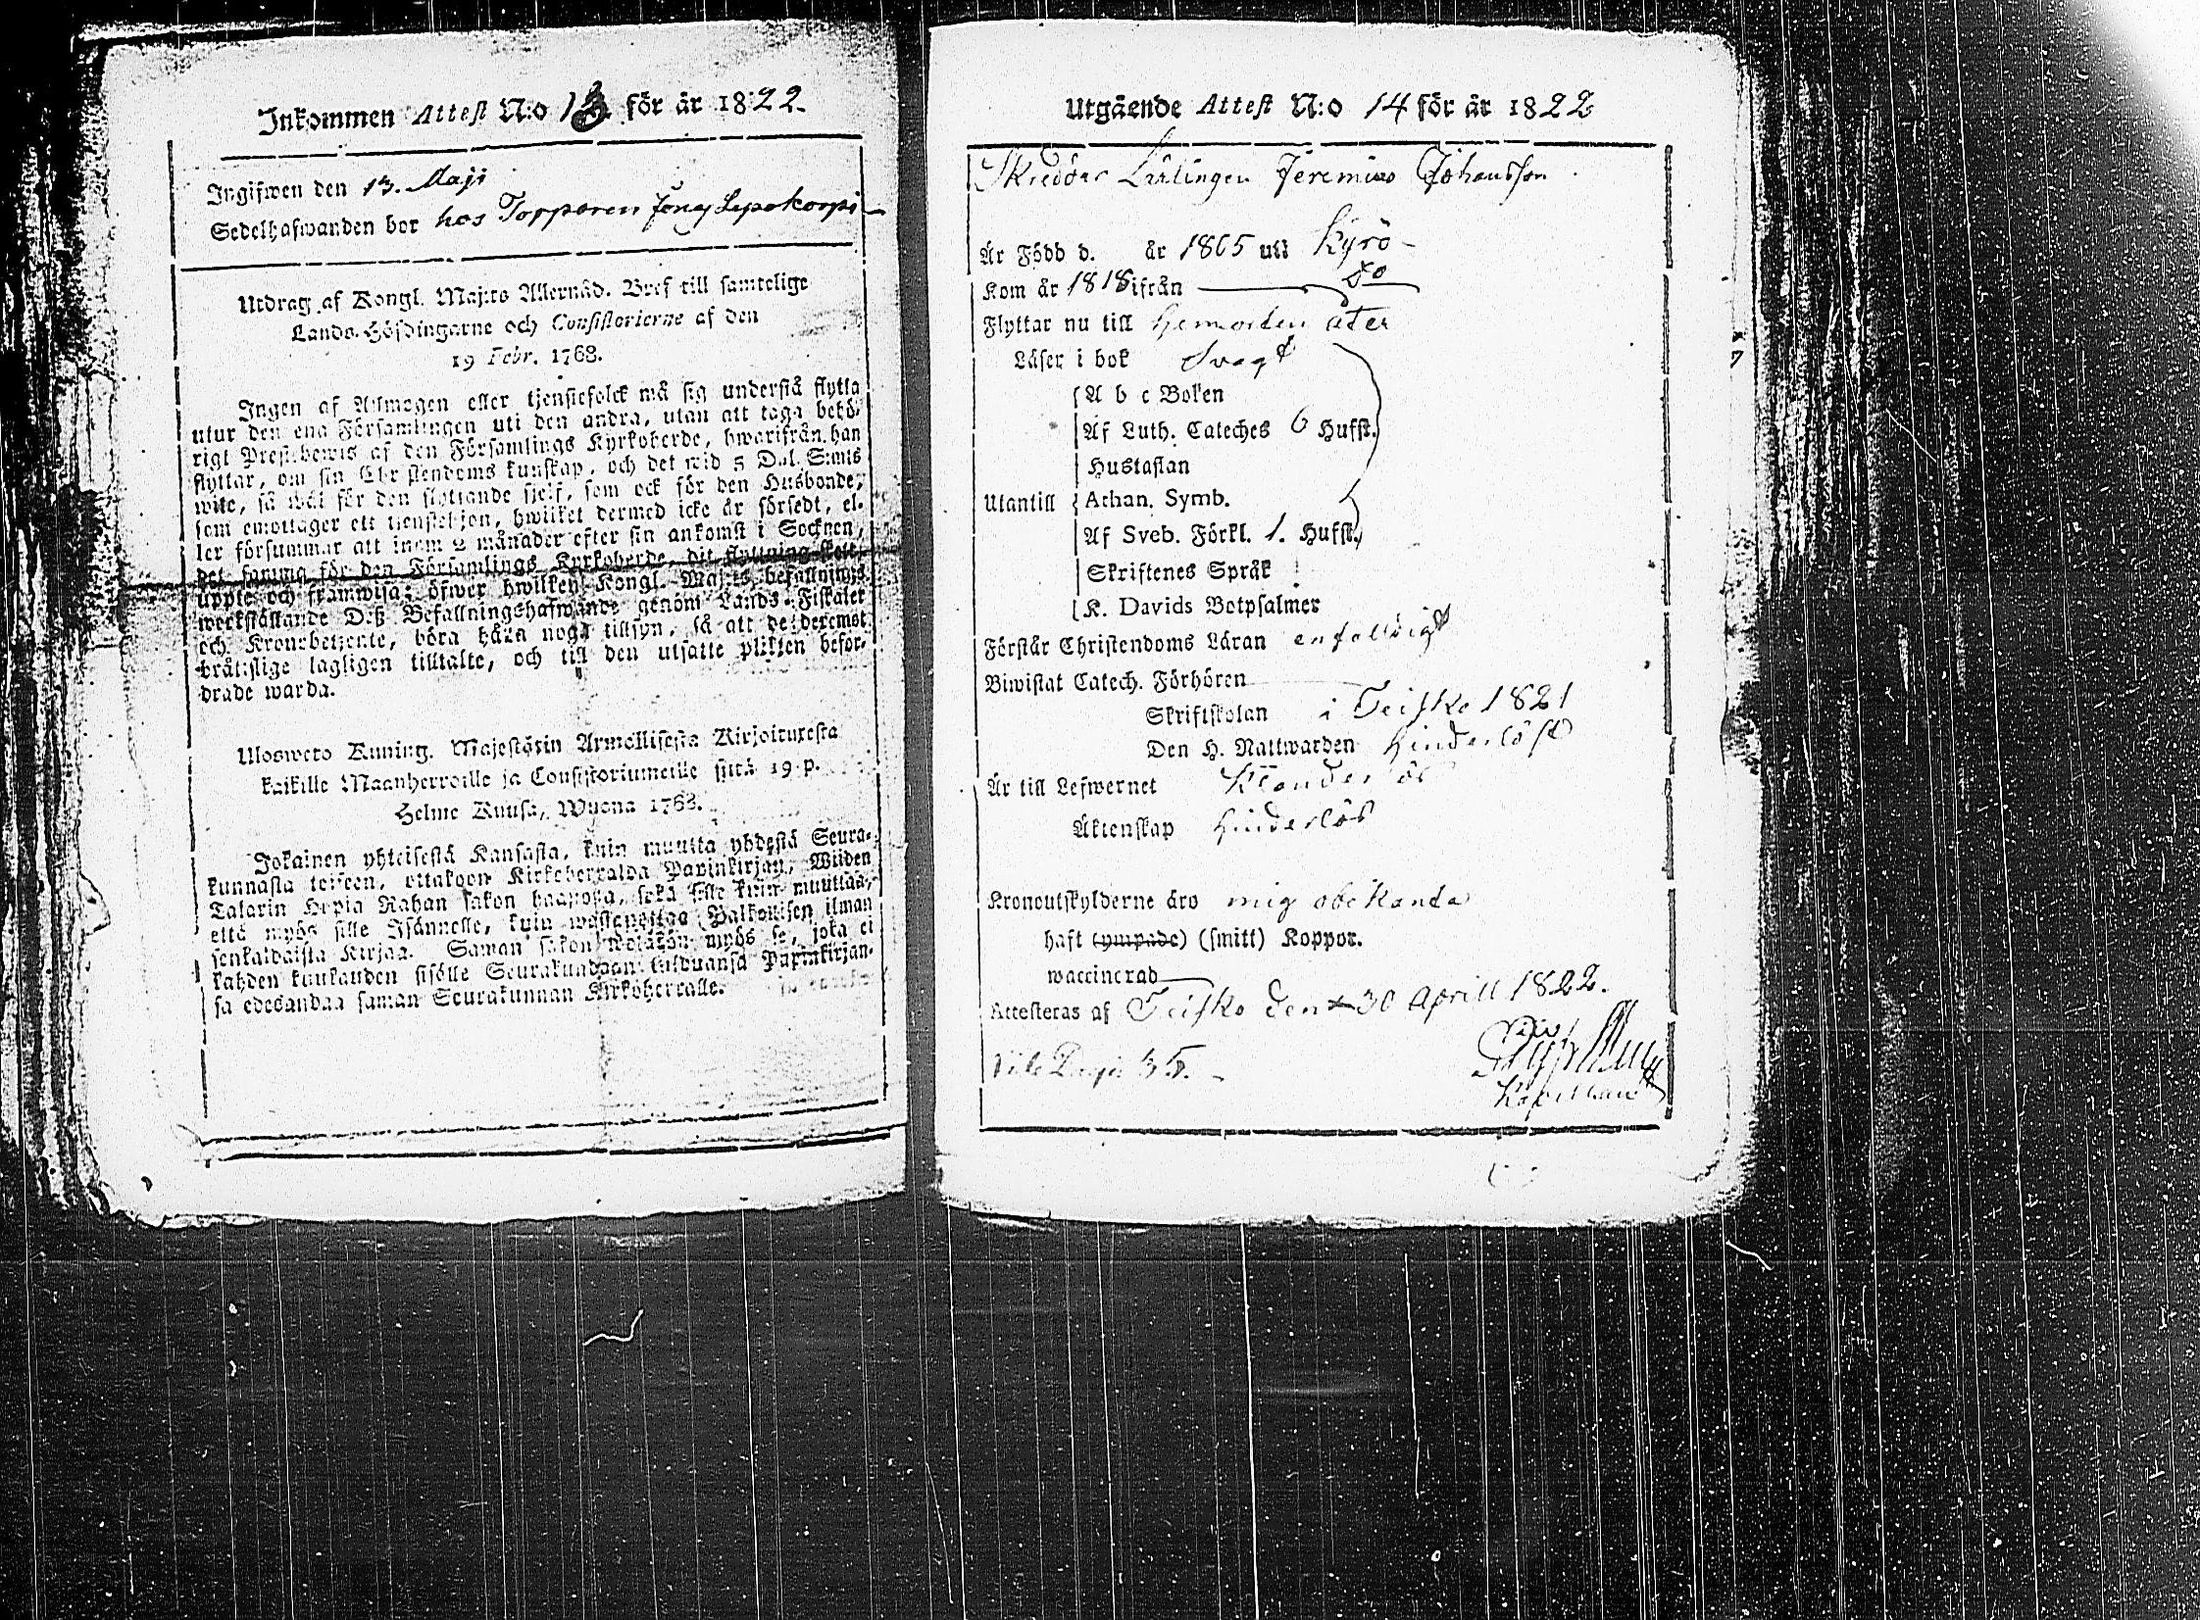 Inkommen Attest N:o 13. för år 1822.
Ingifwen den 13. Maji
Sedelhafwanden bor hos Torparen
Utdrag af Kongl. Maj:ts Allernåd. Bref till samtelige
Lands-Höfdingarne och Consistorierne af den
19 Febr. 1768.
Ingen af Allmogen eller tjenstefolck må sig understå flytta
utur den ena Församlingen uti den andra, utan att taga behö-
rigt Prest-bewis af den Församlings Kyrkoherde, hwarifrån han
flyttar, om sin Christendoms kunskap, och det wid 5 Dal. S:mts
wite, så wäl för den flyttande sjelf, som ock för den Husbonde,
som emottager ett tienstehjon, hwilket dermed icke är försedt, el-
ler försummar att inom 2 månader efter sin ankomst i Socknen,
det samma för den Församlings Kyrkoherde, dit flyttning skett,
uppte och framwisa; öfwer hwilken Kongl. Maj:ts befallnings
werkställande Deß Befallningshafwande genom Lands-Fiskaler
och Kronobetjente, böra hafwa noga tillsyn, så att de deremot
brätslige lagligen tilltalte, och till den utsatte plikten befor-
drade warda.
Ulosweto Kuning. Majestätin Armollisesta Kirjoituxesta
kaikille Maanherroille ja Consistoriumeille siitä 19 p.
Helme Kuusa, Wuona 1768.
Jokainen yhteisestä Kansasta, kuin muutta yhdestä Seura-
kunnasta toiseen, ottakoon Kirkoherralda Papinkirjan, Wiiden
Talarin Hopia Rahan sakon haastolla, sekä sille kuin muuttaa,
että myös sille Isännelle, kuin wastanottaa Palkollisen ilman
senkaldaista Kirjaa. Saman sakon wetäkön myös se, joka ei
kahden kuukauden sisälle Seurakundaan tulduansa Papinkirjan-
sa edesandaa saman Seurakunnan Kirkoherralle.
Utgående Attest N:o 14 för år 1822
Skreddar Lärlingen Jeremias Johansson
Är Född d. år 1805 uti Kyrö
Kom år 1818 ifrån Do
Flyttar nu till hemorten åter
Läser i bok Svagt
A b c Boken
Af Luth. Cateches 6 Hufst.
Hustaflan
Utantill Athan. Symb.
Af Sveb. Förkl. 1. Hufst.
Skriftenes Språk
K. Davids Botpsalmer
Förstår Christendoms Läran enfaldigt
Biwistat Catech. Förhören
Skriftskolan i Teisko 1821
Den H. Nattwarden hinderlöst
Är till Lefwernet Klanderlös
Äktenskap hinderlös
Kronoutskylderne äro mig obekanta
haft (ympade) (smitt) Koppor.
waccinerad
Attesteras af Teisko den 30 Aprill 1822.
Vide Pagin 35.
Kapellan